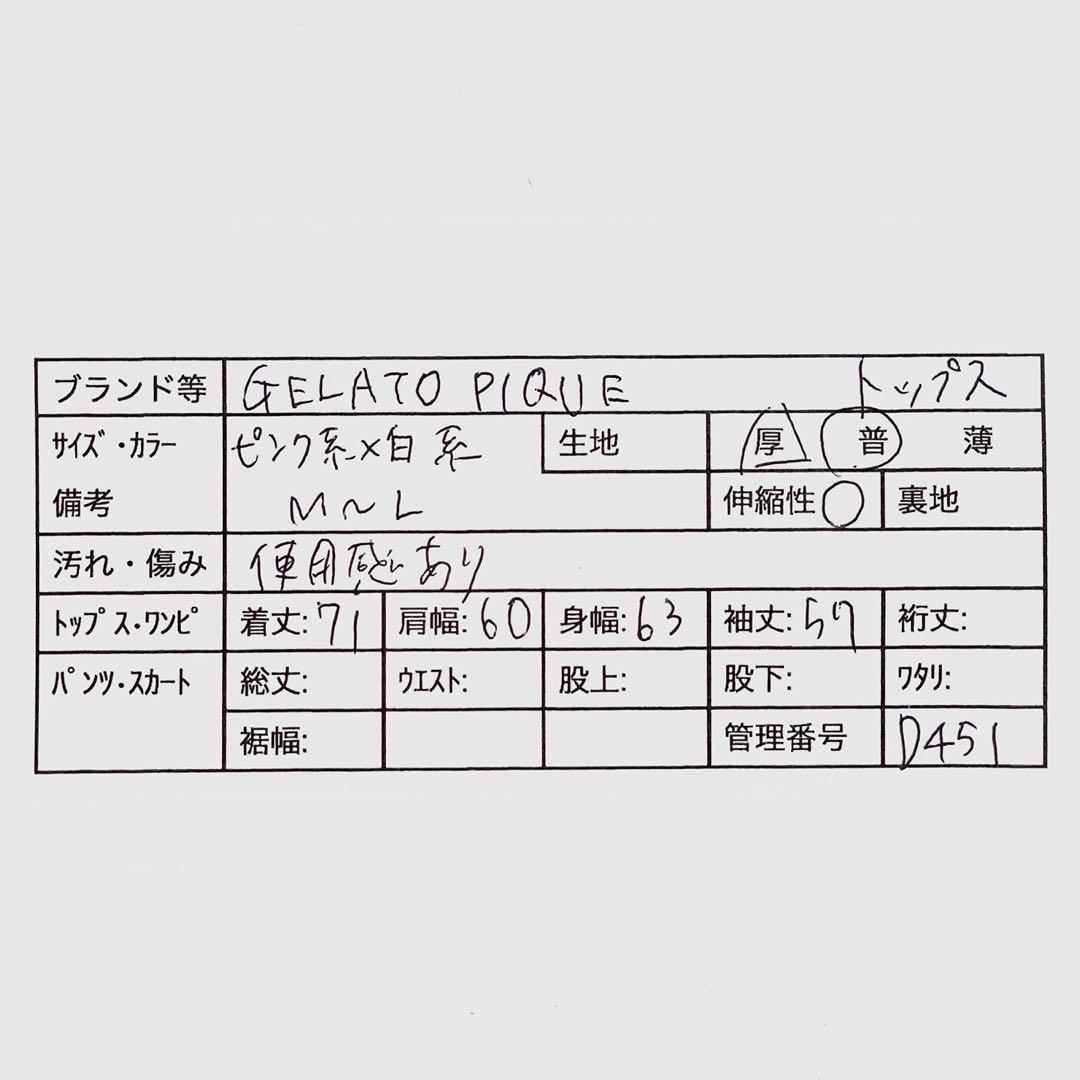 ブランド等 GELATO PIQUE トップス
ｻｲｽﾞ・ｶﾗｰ ピンク系×白系 生地 厚 普 薄
備考 M〜L 伸縮性 ○ 裏地
汚れ・傷み 使用感あり
ﾄｯﾌﾟｽ・ﾜﾝﾋﾟ 着丈:71 肩幅:60 身幅:63 袖丈:57 裄丈:
ﾊﾟﾝﾂ・ｽｶｰﾄ 総丈: ｳｴｽﾄ: 股上: 股下: ﾜﾀﾘ:
裾幅: 管理番号 D451